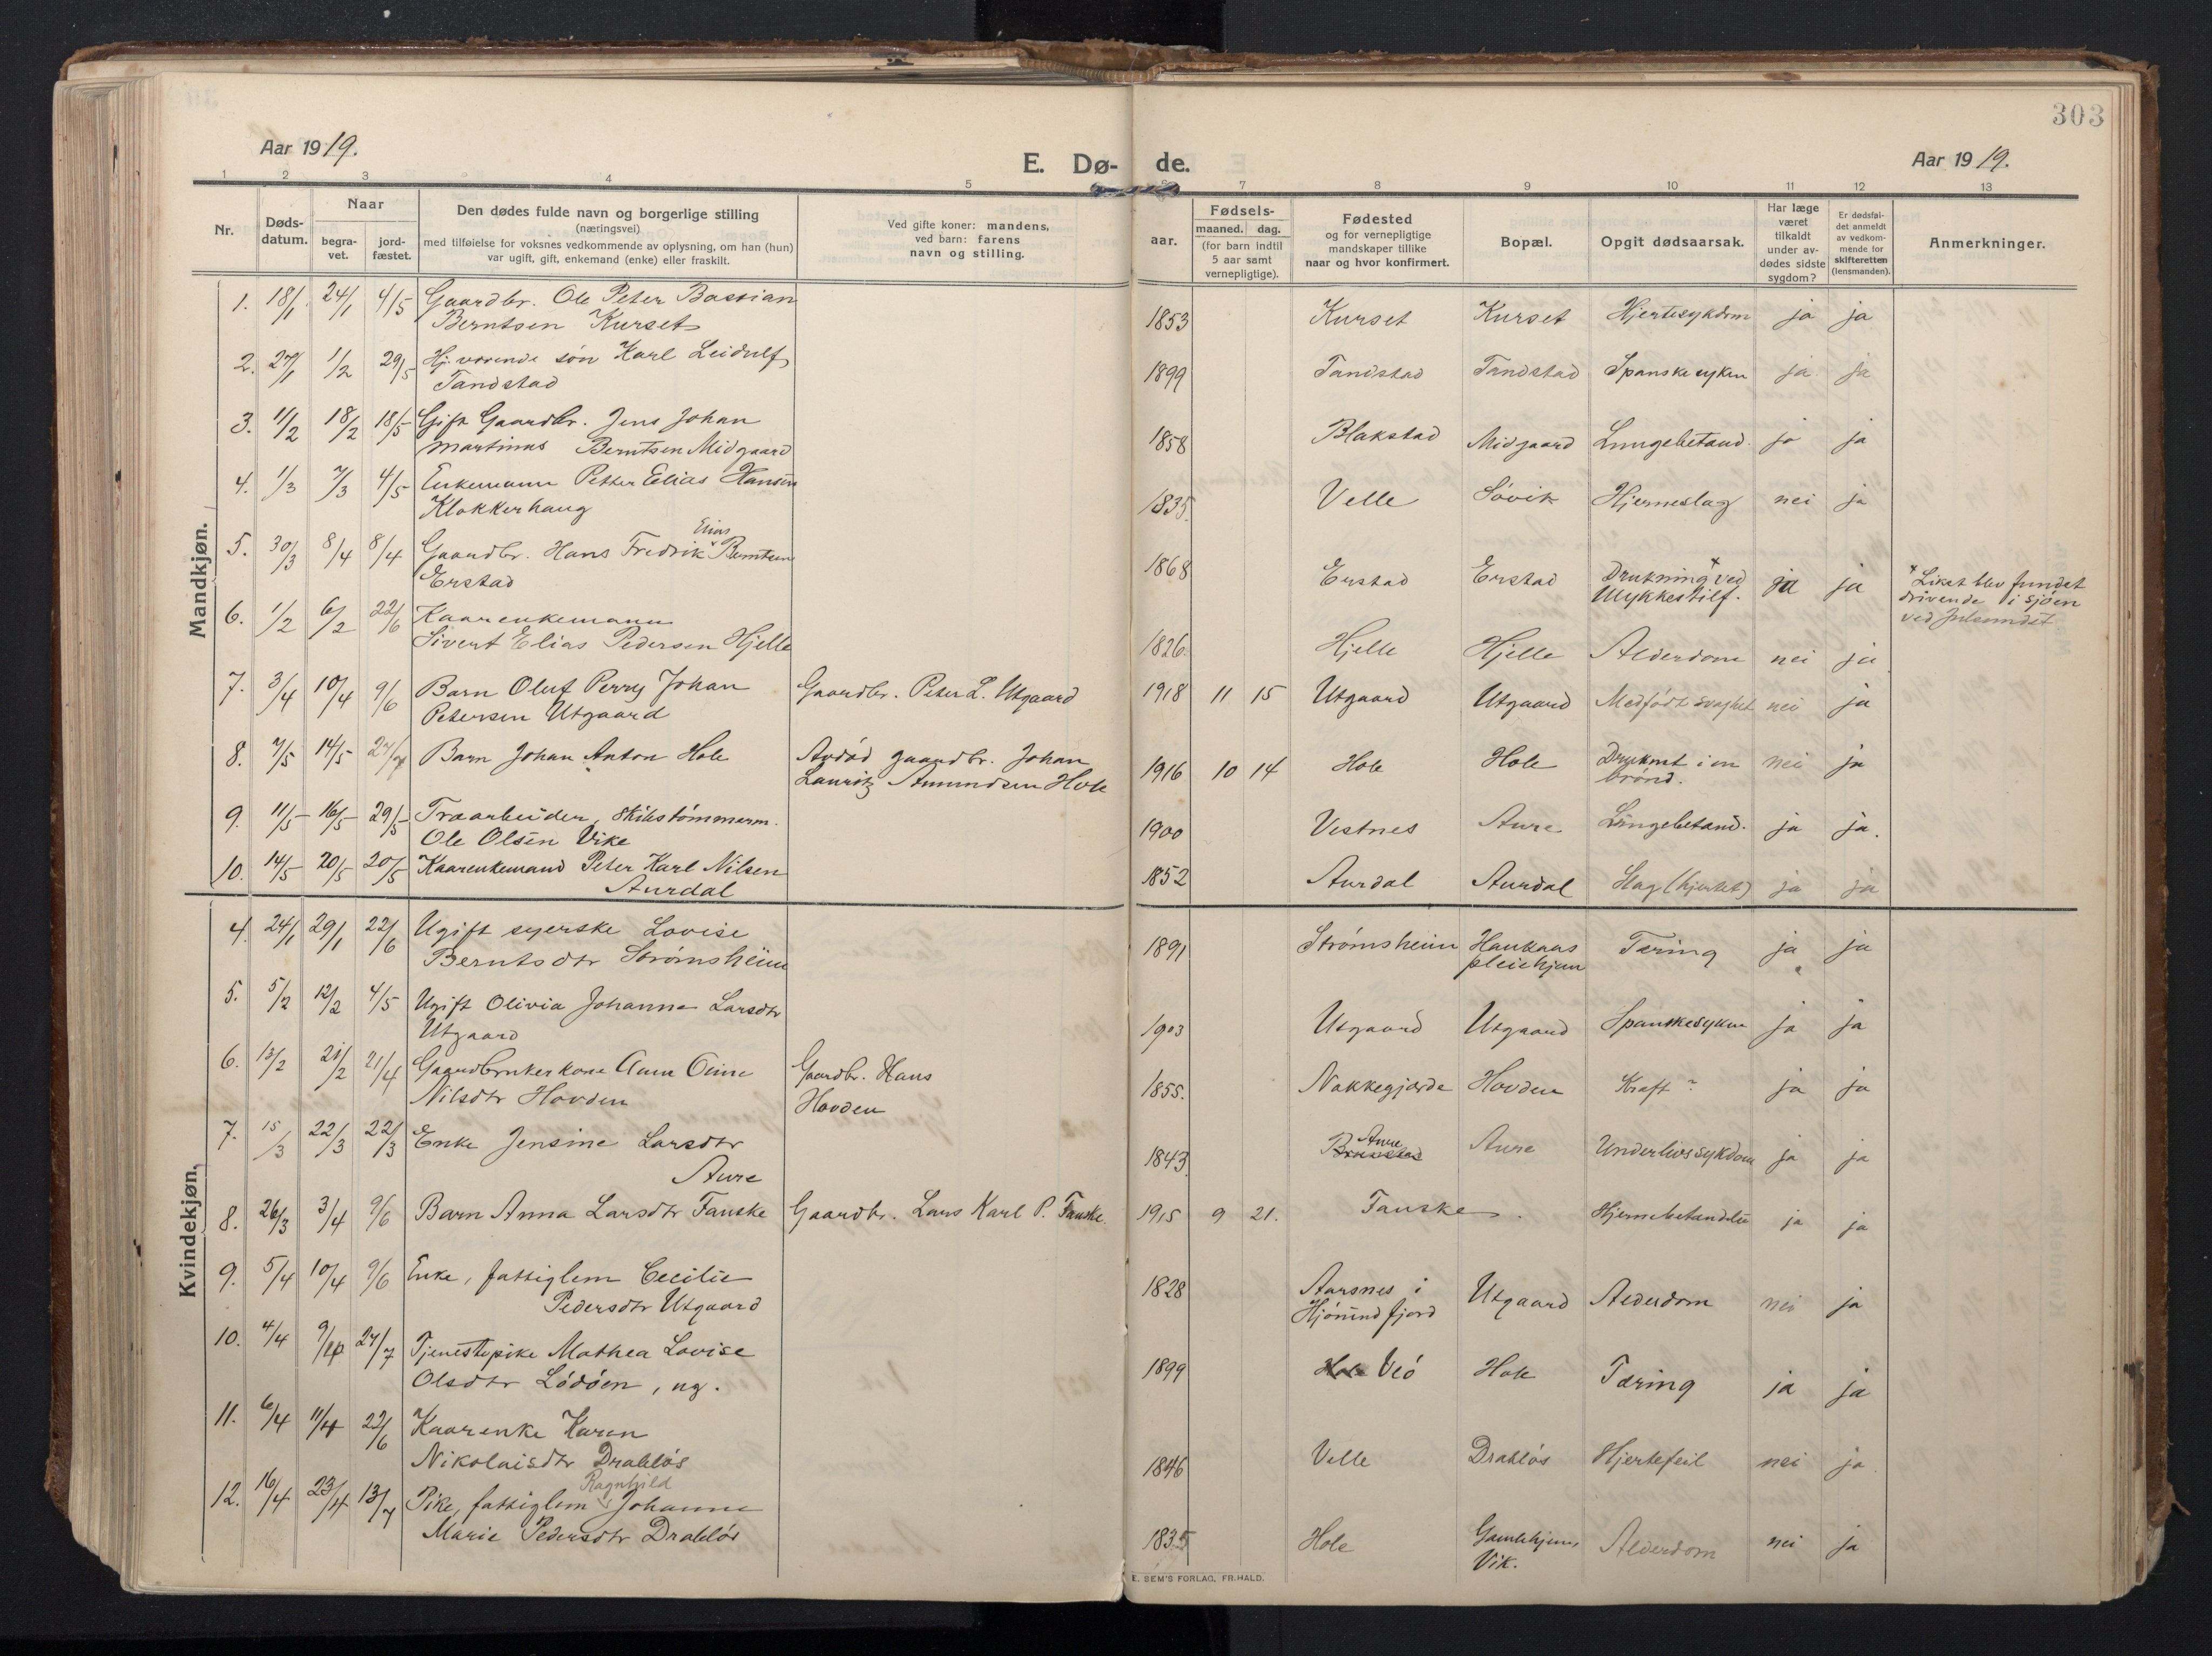 303
Aar 1919.
E. Dø- de.
Aar 1919.
1 2 3 4 5 6 7 8 9 10 11 12 13
Nr.
Døds-
datum.
Naar
begra-
vet.
jord-
fæstet.
Den dødes fulde navn og borgerlige stilling
(næringsvei)
med tilføielse for voksnes vedkommende av oplysning, om han (hun)
var ugift, gift, enkemand (enke) eller fraskilt.
Ved gifte koner: mandens,
ved barn: farens
navn og stilling.
aar.
Fødsels-
maaned. dag.
(for barn indtil
5 aar samt
vernepligtige).
Fødested
og for vernepligtige
mandskaper tillike
naar og hvor konfirmert.
Bopæl.
Opgit dødsaarsak.
Har læge
været
tilkaldt
under av-
dødes sidste
sygdom?
Er dødsfal-
det anmeldt
av vedkom-
mende for
skifteretten
(lensmanden).
Anmerkninger.
Mandkjøn.
1. 18/1 24/1 4/5 Gaardbr. Ole Peter Bastian
Berntsen Kurset
1853 Kurset Kurset Hjertesykdom ja ja
2. 27/1 1/2 29/5 Hj. værende søn Karl Leidulf
Tandstad
1899 Tandstad Tandstad Spanskesyken ja ja
3. 11/2 18/2 18/5 Gift Gaardbr. Jens Johan
Martinus Berntsen Midgaard
1858 Blakstad Midgaard Lungebetænd. ja ja
4. 1/3 7/3 4/5 Enkemann Petter Elias Hansen
Klokkerhaug
1835. Velle Søvik Hjerneslag nei ja
5. 30/3 8/4 8/4 Gaardbr. Hans Fredrik Elias Berntsen
Erstad
1868 Erstad Erstad Drukning x ved
Ulykkestilf. ja ja
x Liket blev fundet
drivende i sjøen
ved Julsundet
6. 1/2 6/2 22/6 Kaarenkemann
Sivert Elias Pedersen Hjelle
1826. Hjelle Hjelle Alderdom nei ja
7. 3/4 10/4 9/6 Barn Oluf Perry Johan
Petersen Utgaard
Gaardbr. Peter L. Utgaard
1918 11 15 Utgaard Utgaard Medfødt svaghet nei ja
8. 7/5 14/5 27/7 Barn Johan Anton Hole
Avdød gaardbr. Johan
Lauritz Amundsen Hole
1916 10 14 Hole Hole Druknet i en
brønd. nei ja
9. 11/5 16/5 29/5 Træarbeider, skibstømmerm.
Ole Olsen Vike
1900 Vestnes Aure Lungebetænd. ja ja.
10. 14/5 20/5 20/5 Kaarenkemand Peter Karl Nilsen
Aurdal
1852 Aurdal Aurdal Slag (hjertet) ja ja
Kvindekjøn.
4. 24/1 29/1 22/6 Ugift syerske Lovise
Berntsdtr Strømsheim
1891 Strømsheim Haukaas
pleiehjem Tæring ja ja
5. 5/2 12/2 4/5 Ugift Olivia Johanne Larsdtr
Utgaard
1903 Utgaard Utgaard Spanskesyken ja ja
6. 13/2 21/2 21/4 Gaardbrukerkone Anne Oline
Nilsdtr Hovden
Gaardbr. Hans
Hovden
1855. Nakkegjærde Hovden Kræft? ja ja
7. 15/3 22/3 22/3 Enke Jensine Larsdtr
Aure
1843 Aure Aure Underlivssykdom ja ja
8. 26/3 3/4 9/6 Barn Anna Larsdtr Fauske
Gaardbr. Lars Karl P. Fauske.
1915 9 21. Fauske. Hjernebetændelse ja ja
9. 5/4 10/4 9/6 Enke, fattiglem Cecilie
Pedersdtr Utgaard
1828 Aarsnes i
Hjørundfjord Utgaard Alderdom nei ja
10. 4/4 9/4 27/7 Tjenestepike Mathea Lovise
Olsdtr Lødøen, ug.
1899 Veø Hole Tæring ja ja
11. 6/4 11/4 22/6 Kaarenke Karen
Nikolaisdtr Drabløs
1846 Velle Drabløs Hjertefeil nei ja
12. 16/4 23/4 13/7 Pike, fattiglem Ragnhild Johanne
Marie Pedersdtr Drabløs
1835 Hole Gamlehjem,
Vik. Alderdom nei ja
E. SEM'S FORLAG, FR.HALD.